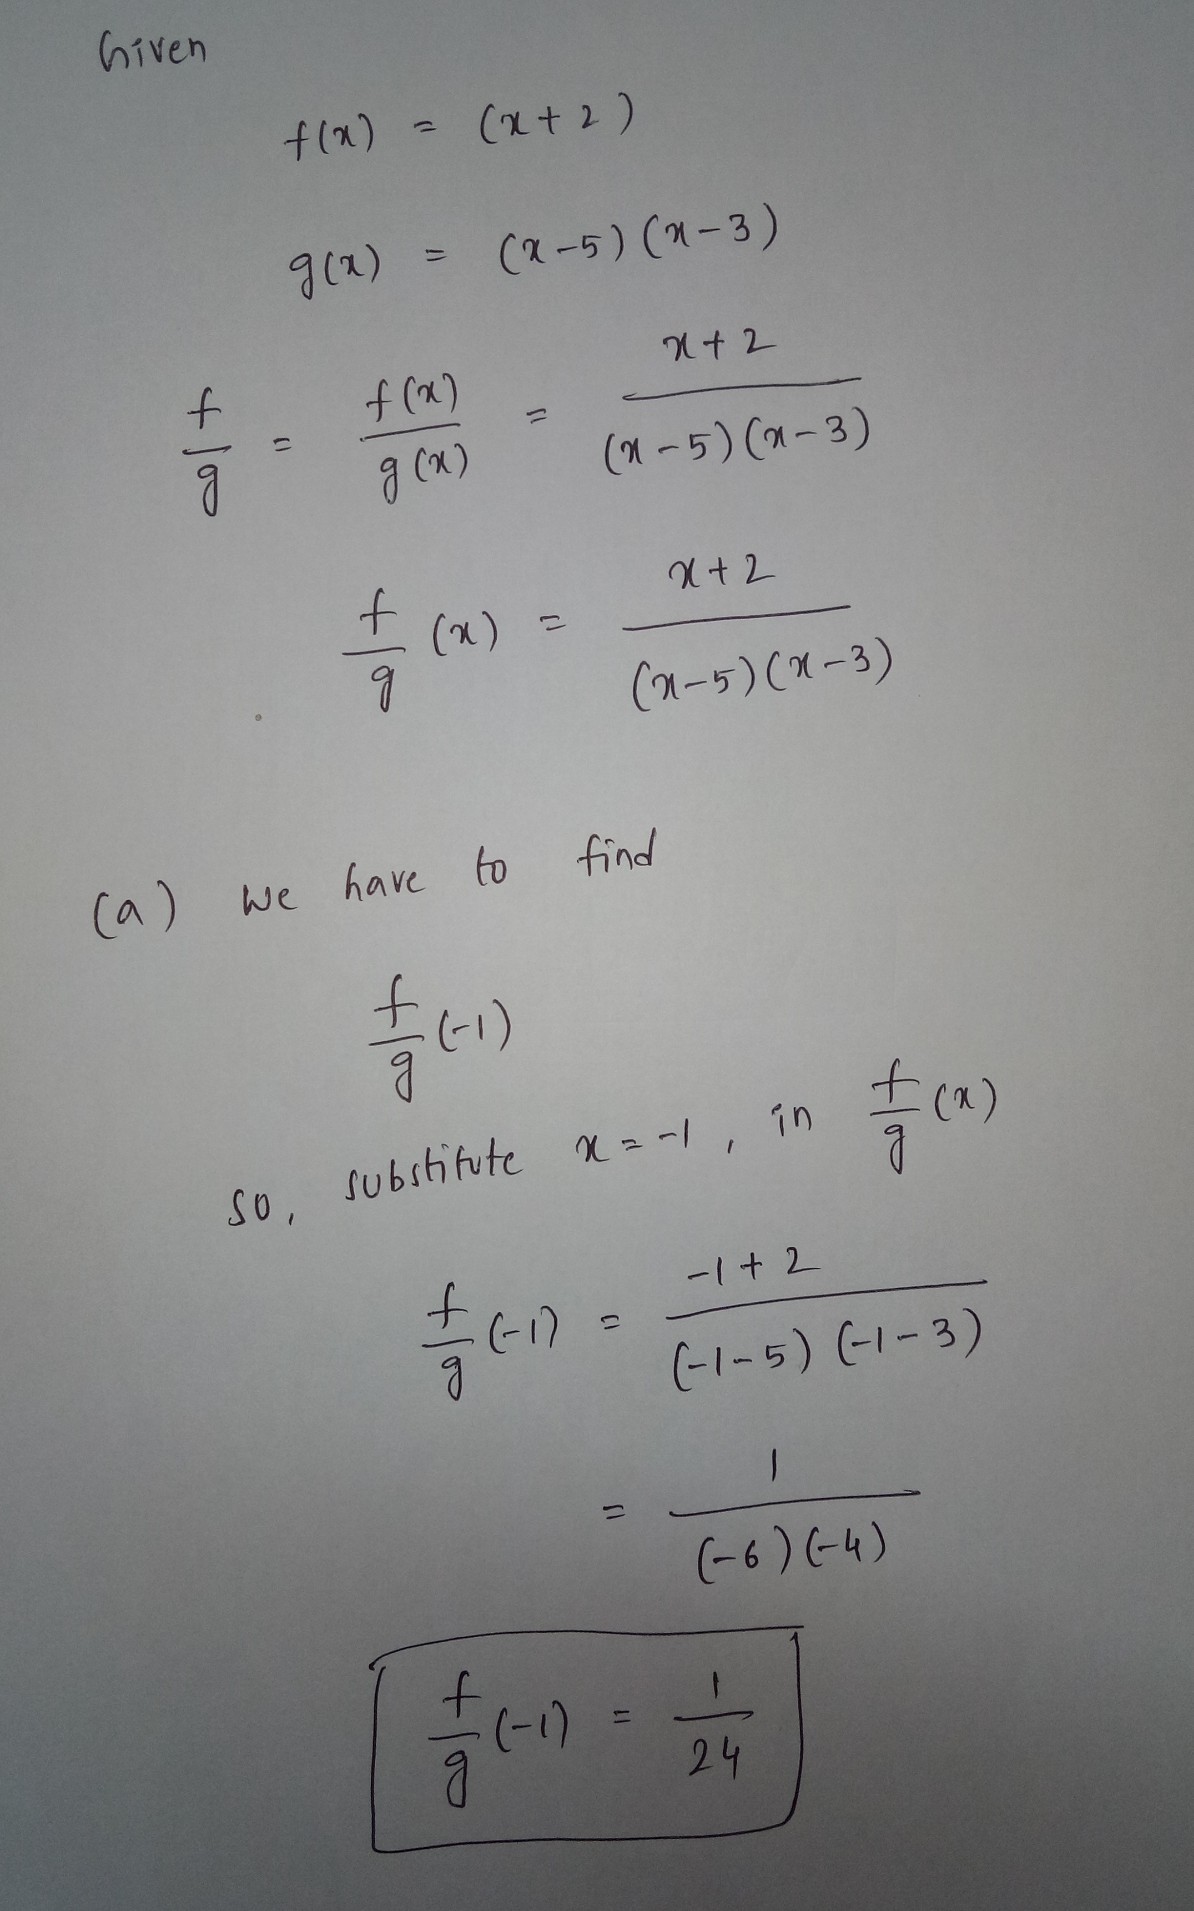 Given
f(x) = (x+2)
g(x) = (x-5)(x-3)
f/g = f(x)/g(x) = x+2/(x-5)(x-3)
f/g (x) = x+2/(x-5)(x-3)
(a) We have to find
f/g (-1)
so, substitute x = -1, in f/g (x)
f/g (-1) = -1+2/(-1-5)(-1-3)
= 1/(-6)(-4)
f/g (-1) = 1/24